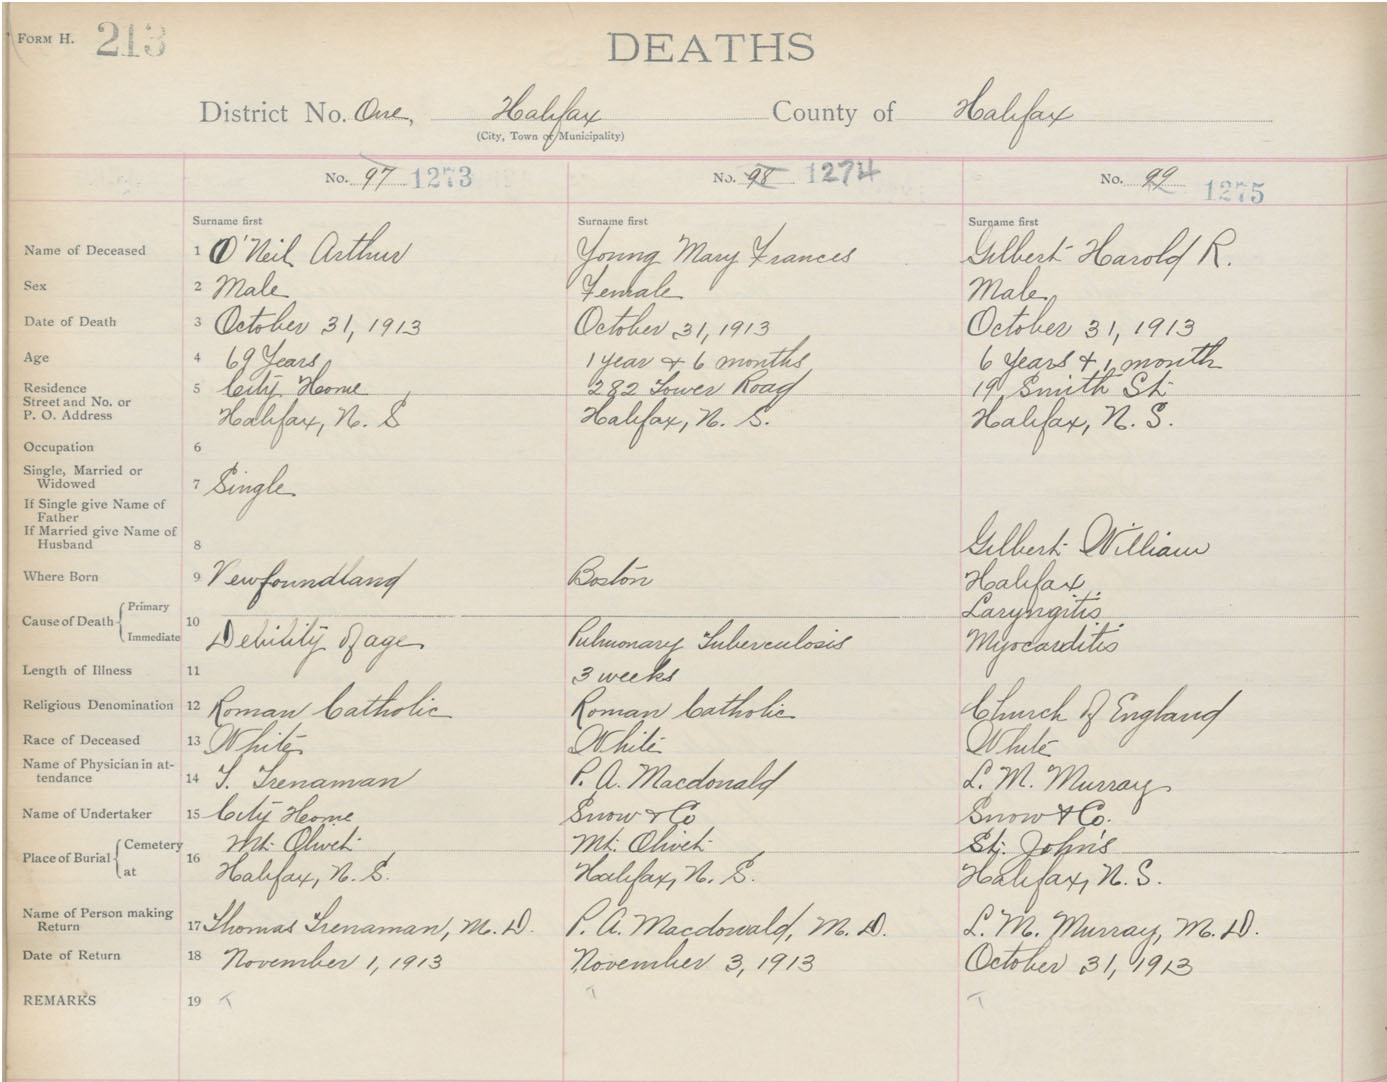 FORM H. 213
DEATHS
District No. One, Halifax County of Halifax
(City, Town or Municipality)
No. 97 1273 No. 98 1274 No. 99 1275
Surname first Surname first Surname first
Name of Deceased 1 O'Neil Arthur Young Mary Frances Gilbert Harold R.
Sex 2 Male Female Male
Date of Death 3 October 31, 1913 October 31, 1913 October 31, 1913
Age 4 69 Years 1 year + 6 months 6 years + 1 month
Residence 5 City Home 282 Tower Road 19 Smith St.
Street and No. or
P. O. Address Halifax, N. S Halifax, N. S. Halifax, N. S.
Occupation 6
Single, Married or
Widowed 7 Single
If Single give Name of
Father
If Married give Name of
Husband 8 Gilbert William
Where Born 9 Newfoundland Boston Halifax
Cause of Death Primary 10 Laryngitis
Immediate Debility of age Pulmonary Tuberculosis Myocarditis
Length of Illness 11 3 weeks
Religious Denomination 12 Roman Catholic Roman Catholic Church of England
Race of Deceased 13 White White White
Name of Physician in at-
tendance 14 T. Trenaman P. A. Macdonald L. M. Murray
Name of Undertaker 15 City Home Snow + Co Snow + Co.
Place of Burial Cemetery 16 Mt. Olivet Mt. Olivet St. John's
at Halifax, N. S. Halifax, N. S. Halifax, N. S.
Name of Person making
Return 17 Thomas Trenaman, M. D. P. A. Macdonald, M. D. L. M. Murray, M. D.
Date of Return 18 November 1, 1913 November 3, 1913 October 31, 1913
REMARKS 19 T T T